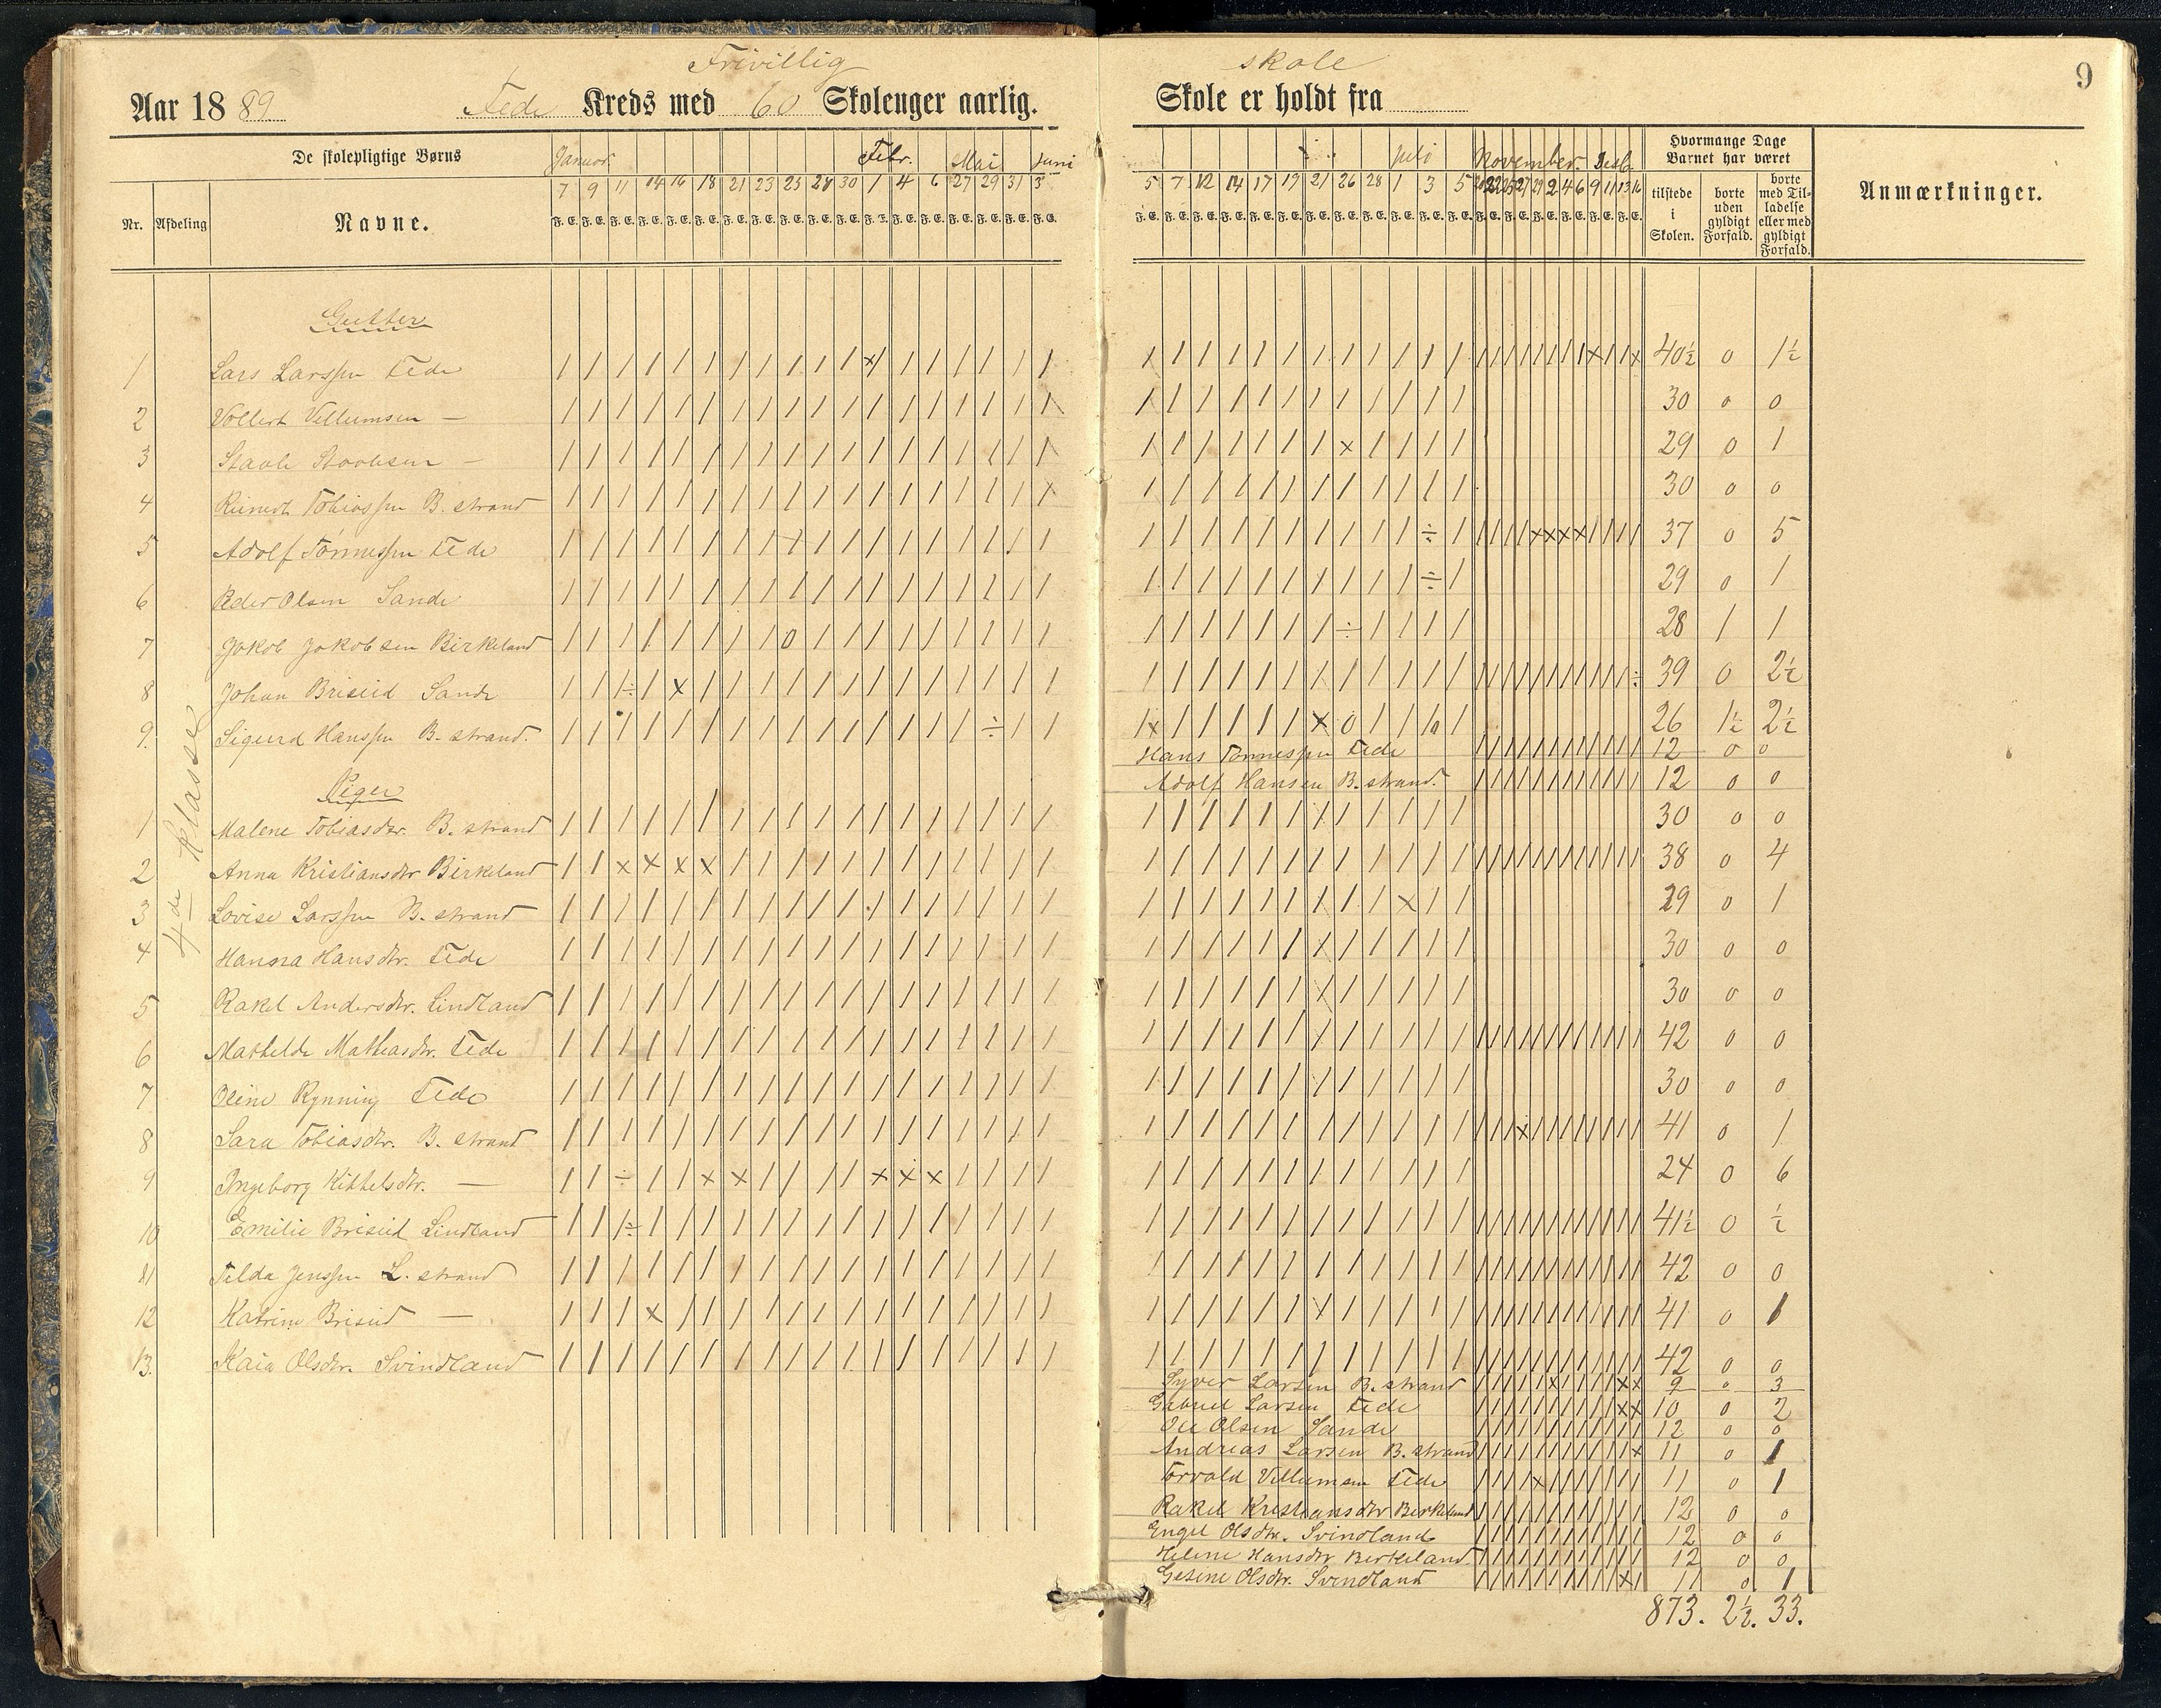 Frivillig skole
9
Aar 1889 Fede Kreds med 60 Skoleuger aarlig. Skole er holdt fra
De skolepligtige Børns
Januar Febr. Mai Juni Juli November Desb.
Hvormange Dage Barnet har været
Anmærkninger.
Nr. Afdeling Navne.
7 9 11 14 16 18 21 23 25 28 30 1 4 6 27 29 31 3
5 7 12 14 17 19 21 26 28 1 3 5
F. E.
tilstede i Skolen.
borte uden gyldigt Forfald.
borte med Tilladelse eller med gyldigt Forfald.
4de Klasse
Gutter
1 Lars Larssen Fede 40½ 0 1½
2 Vollert Villumsen — 30 0 0
3 29 0 1
4 Reinert Tobiassen B. strand 30 0 0
5 Adolf Tønnessen Fede 37 0 5
6 Peder Olsen Sande 29 0 1
7 Jakob Jakobsen Birkeland 28 1 1
8 Johan Briseid Sande 39 0 2½
9. Sigurd Hanssen B. strand. 26 1½ 2½
Hans Tønnessen Fede 12 0 0
Adolf Hansen B. strand. 12 0 0
Piger
1 Malene Tobiasdtr. B. strand 30 0 0
2 Anna Kristiansdtr Birkeland 38 0 4
3 Lovise Larssen B. strand 29 0 1
4 Hanna Hansdtr. Fede 30 0 0
5 Rakel Andersdtr. Lindland 30 0 0
6 Mathilde Mathiasdtr. Fede 42 0 0
7 Oline Rynning Fede 30 0 0
8 Sara Tobiasdtr. B. strand 41 0 1
9 Ingeborg Kittelsdtr. — 24 0 6
10 Emilie Briseid Lindland 41½ 0 ½
11 Tilda Jenssen L. strand 42 0 0
12 Katrine Briseid — 41 0 1
13. Kaia Olsdtr. Svindland 42 0 0
Syver Larsen B. strand 9 0 3
Gabriel Larsen Fede 10 0 2
Ole Olsen Sande 12 0 0
Andreas Larsen B. strand 11 0 1
Torvald Villumsen Fede 11 0 1
Rakel Kristiansdtr Birkeland 12 0 0
Engel Olsdtr. Svindland 12 0 0
Helene Hansdtr Birkeland 12 0 0
Gesine Olsdtr. Svindland 11 0 1
873. 2½. 33.